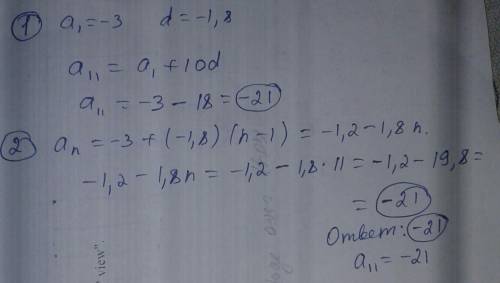 ① a₁ = -3 d = -1,8
a₁₁ = a₁ + 10d
a₁₁ = -3 - 18 = -21
② aₙ = -3 + (-1,8) (n-1) = -1,2 - 1,8n.
-1,2 - 1,8n = -1,2 - 1,8 · 11 = -1,2 - 19,8 =
= -21
Ответ: -21
a₁₁ = -21
view".